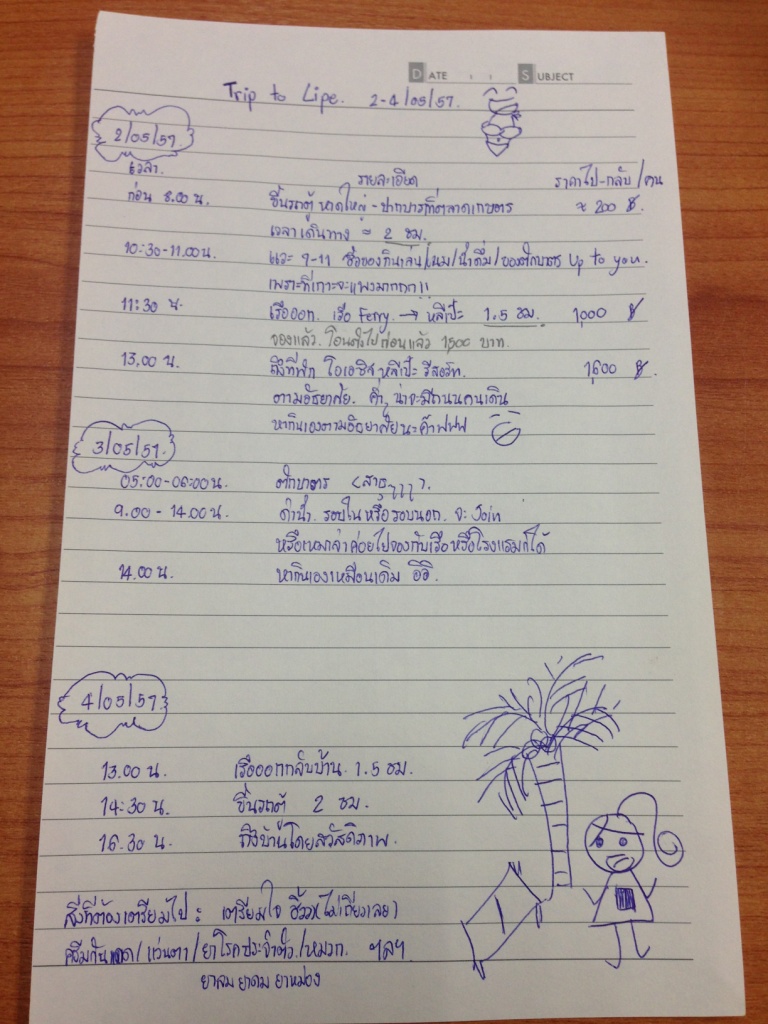 DATE SUBJECT
Trip to Lipe. 2-4/05/57.
2/05/57.
เวลา. รายละเอียด ราคาไป-กลับ/คน
ก่อน 8.00 น. ขึ้นรถตู้ หาดใหญ่ - ปากบาราที่ตลาดเกษตร ≈ 200 ฿.
เวลาเดินทาง ≈ 2 ชม.
10:30-11.00น. แวะ 7-11 ซื้อของกินเล่น/นม/น้ำดื่ม/ของตักบาตร Up to you.
เพราะที่เกาะจะแพงมากกก!!
11:30 น. เรือออก. เรือ Ferry. → หลีเป๊ะ 1.5 ชม. 1,000 ฿
จองแล้ว. โอนตังไปก่อนแล้ว 1,500 บาท.
13.00 น. ถึงที่พัก โอเอซิส หลีเป๊ะ รีสอร์ท. 1,600 ฿.
ตามอัธยาศัย. ค่ำๆ น่าจะมีถนนคนเดิน
หากินเองตามอัธยาศัยนะค๊าฟฟฟ
3/05/57.
05:00-06:00น. ตักบาตร (สาธุๆๆๆ).
9.00 - 14.00น. ดำน้ำ. รอบในหรือรอบนอก. จะ Join
หรือเหมาลำค่อยไปจองกับเรือหรือโรงแรมก็ได้
14.00 น. หากินเองเหมือนเดิม อิอิ.
4/05/57.
13.00 น. เรือออกกลับบ้าน. 1.5 ชม.
14:30 น. ขึ้นรถตู้ 2 ชม.
16.30 น. ถึงบ้านโดยสวัสดิภาพ.
สิ่งที่ต้องเตรียมไป : เตรียมใจ (ไม่เกี่ยวเลย)
ครีมกันแดด/แว่นตา/ยาโรคประจำตัว./หมวก. ฯลฯ
ยาลม ยาดม ยาหม่อง